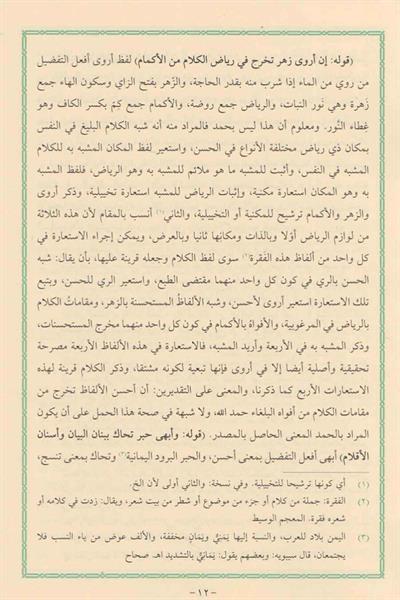 (قوله: إن أروى زهر تخرج في رياض الكلام من الأكمام) لفظ أروى أفعل التفضيل
من روي من الماء إذا شرب منه بقدر الحاجة، والزَّهر بفتح الزاي وسكون الهاء جمع
زَهرة وهي نَور النبات، والرياض جمع روضة، والأكمام جمع كِمّ بكسر الكاف وهو
غِطاء النَّور. ومعلوم أن هذا ليس بحمد فالمراد منه أنه شبه الكلام البليغ في النفس
بمكان ذي رياض مختلفة الأنواع في الحسن، واستعير لفظ المكان المشبه به للكلام
المشبه في النفس، وأثبت للمشبه ما هو ملائم للمشبه به وهو الرياض، فلفظ المشبه
به وهو المكان استعارة مكنية، وإثبات الرياض للمشبه استعارة تخييلية، وذكر أروى
والزهر والأكمام ترشيح للمكنية أو التخييلية، والثاني(١) أنسب بالمقام لأن هذه الثلاثة
من لوازم الرياض أوّلا وبالذات ومكانِها ثانيا وبالعرض، ويمكن إجراء الاستعارة في
كل واحد من ألفاظ هذه الفقرة(٢) سوى لفظ الكلام وجعله قرينة عليها، بأن يقال: شبه
الحسن بالري في كون كل واحد منهما مقتضى الطبع، واستعير الري للحسن، ويتبع
تلك الاستعارة استعير أروى لأحسن، وشبه الألفاظُ المستحسنة بالزهر، ومقاماتُ الكلام
بالرياض في المرغوبية، والأفواهُ بالأكمام في كون كل واحد منهما مخرج المستحسنات،
وذكر المشبه به في الأربعة وأريد المشبه، فالاستعارة في هذه الألفاظ الأربعة مصرحة
تحقيقية وأصلية أيضا إلا في أروى فإنها تبعية لكونه مشتقا، وذكر الكلام قرينة لهذه
الاستعارات الأربع كما ذكرنا، والمعنى على التقديرين: أن أحسن الألفاظ تخرج من
مقامات الكلام من أفواه البلغاء حمد الله، ولا شبهة في صحة هذا الحمل على أن يكون
المراد بالحمد المعنى الحاصل بالمصدر. (قوله: وأبهى حبر تحاك ببنان البيان وأسنان
الأقلام) أبهى أفعل التفضيل بمعنى أحسن، والحبر البرود اليمانية(٣) وتحاك بمعنى تنسج،
(١) أي كونها ترشيحا للتخييلية. وفي نسخة: والثاني أولى لأن الخ.
(٢) الفقرة: جملة من كلام أو جزء من موضوع أو شطر من بيت شعر، ويقال: زدت في كلامه أو
شعره فقرة. المعجم الوسيط
(٣) اليمن بلاد للعرب، والنسبة إليها يَمَنِيٌّ ويَمَانٍ مخففة، والألف عوض من ياء النسب فلا
يجتمعان، قال سيبويه: وبعضهم يقول: يَمَانِيٌّ بالتشديد اهـ صحاح
-١٢-